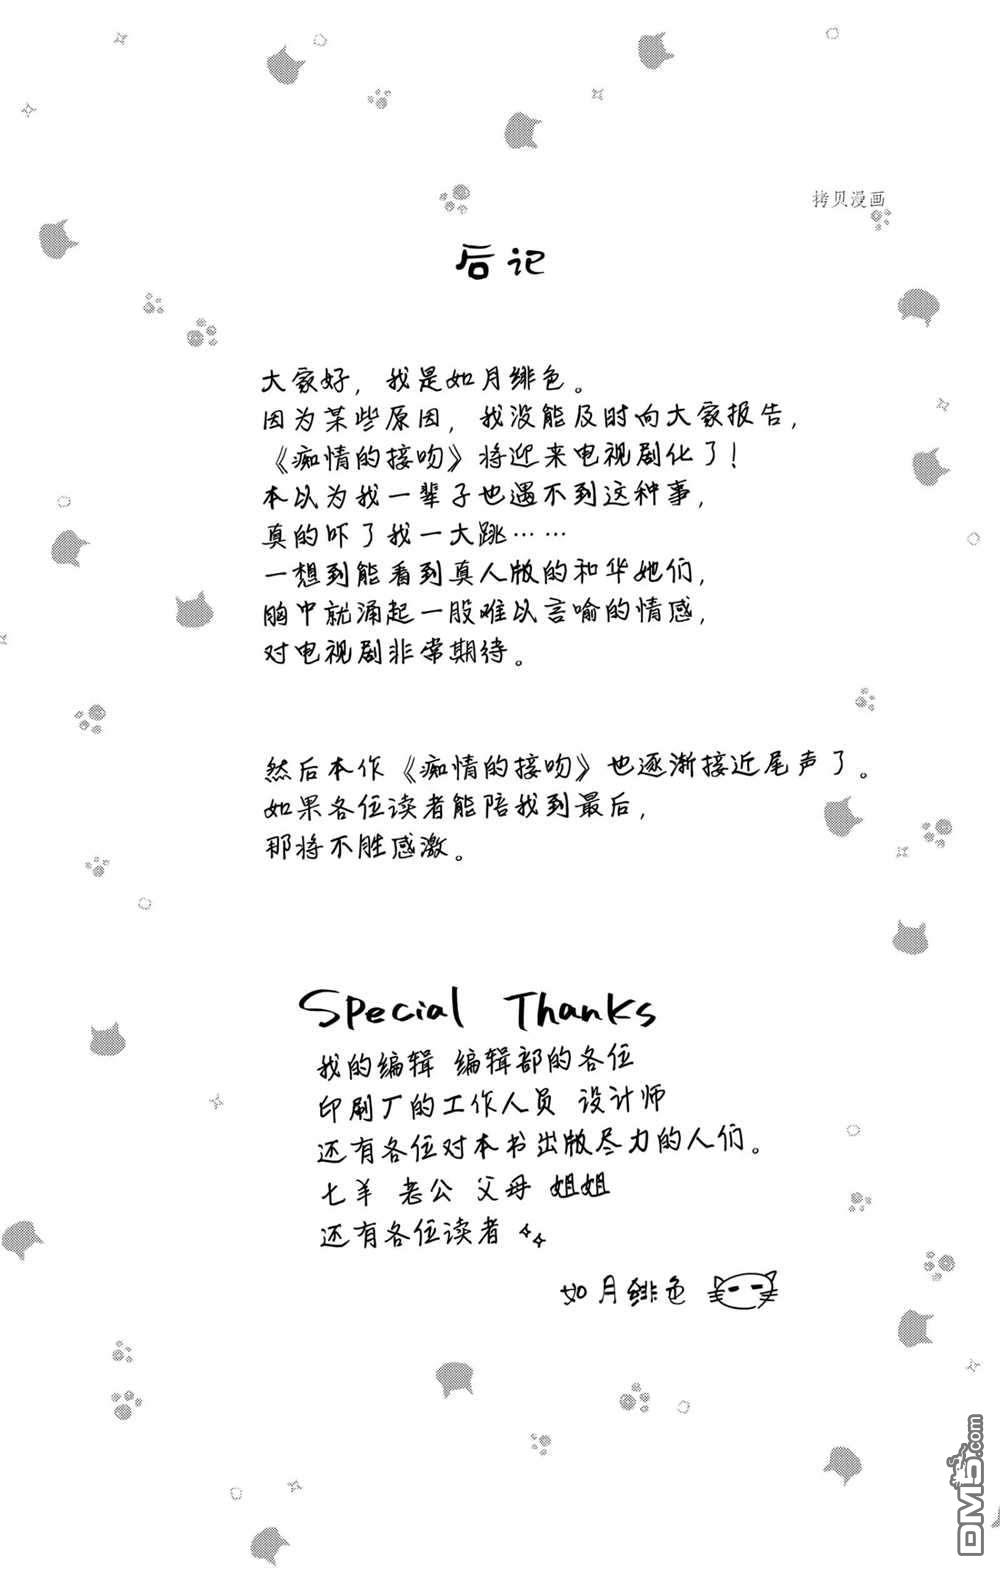 拷贝漫画
后记
大家好，我是如月绯色。
因为某些原因，我没能及时向大家报告，
《痴情的接吻》将迎来电视剧化了！
本以为我一辈子也遇不到这种事，
真的吓了我一大跳……
一想到能看到真人版的和华她们，
胸中就涌起一股难以言喻的情感，
对电视剧非常期待。
然后本作《痴情的接吻》也逐渐接近尾声了。
如果各位读者能陪我到最后，
那将不胜感激。
Special Thanks
我的编辑 编辑部的各位
印刷厂的工作人员 设计师
还有各位对本书出版尽力的人们。
七羊 老公 父母 姐姐
还有各位读者
如月绯色
DM5.com